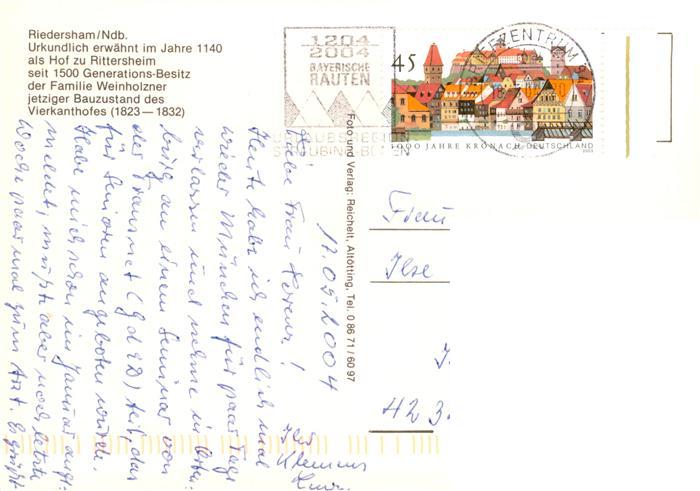 Riedersham/Ndb.
Urkundlich erwähnt im Jahre 1140
als Hof zu Rittersheim
seit 1500 Generations-Besitz
der Familie Weinholzner
jetziger Bauzustand des
Vierkanthofes (1823—1832)
1204
2004
BAYERISCHE
RAUTEN
45
1000 JAHRE KRONACH DEUTSCHLAND
BRIEFZENTRUM
Foto und Verlag: Reichelt, Altötting, Tel. 0 86 71 / 60 97
17.05.2004
Liebe Frau
Heute habe ich endlich mal
wieder München für paar Tage
verlassen und nehme in
burg an einem Seminar von
der Transnet (GdED) teil, das
für Senioren angeboten wurde.
Habe mich schon im Januar ange-
meldet, mußte aber noch letzte
Woche paar mal zum Arzt. Es grüßt
Ihr
Klemens
Frau
Ilse
42 3